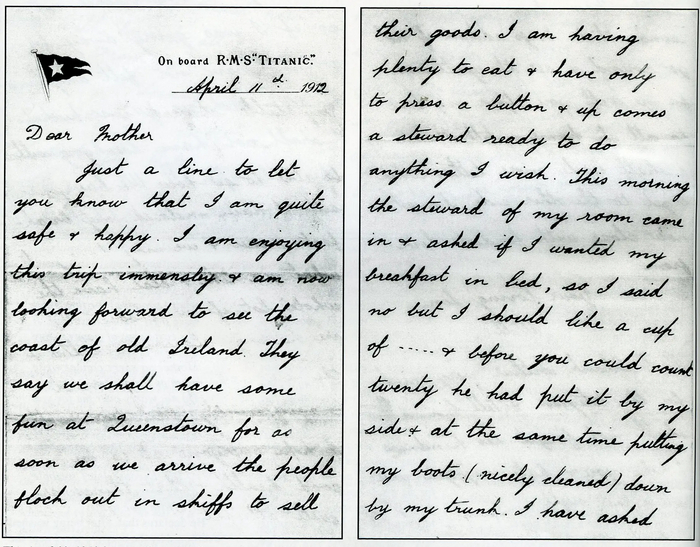 On board R·M·S "TITANIC."
April 11 d. 1912
Dear Mother
Just a line to let
you know that I am quite
safe & happy. I am enjoying
this trip immensley. & am now
looking forward to see the
coast of old Ireland. They
say we shall have some
fun at Queenstown for as
soon as we arrive the people
flock out in skiffs to sell
their goods. I am having
plenty to eat & have only
to press a button & up comes
a steward ready to do
anything I wish. This morning
the steward of my room came
in & asked if I wanted my
breakfast in bed, so I said
no but I should like a cup
of ..... & before you could count
twenty he had put it by my
side & at the same time putting
my boots (nicely cleaned) down
by my trunk. I have asked